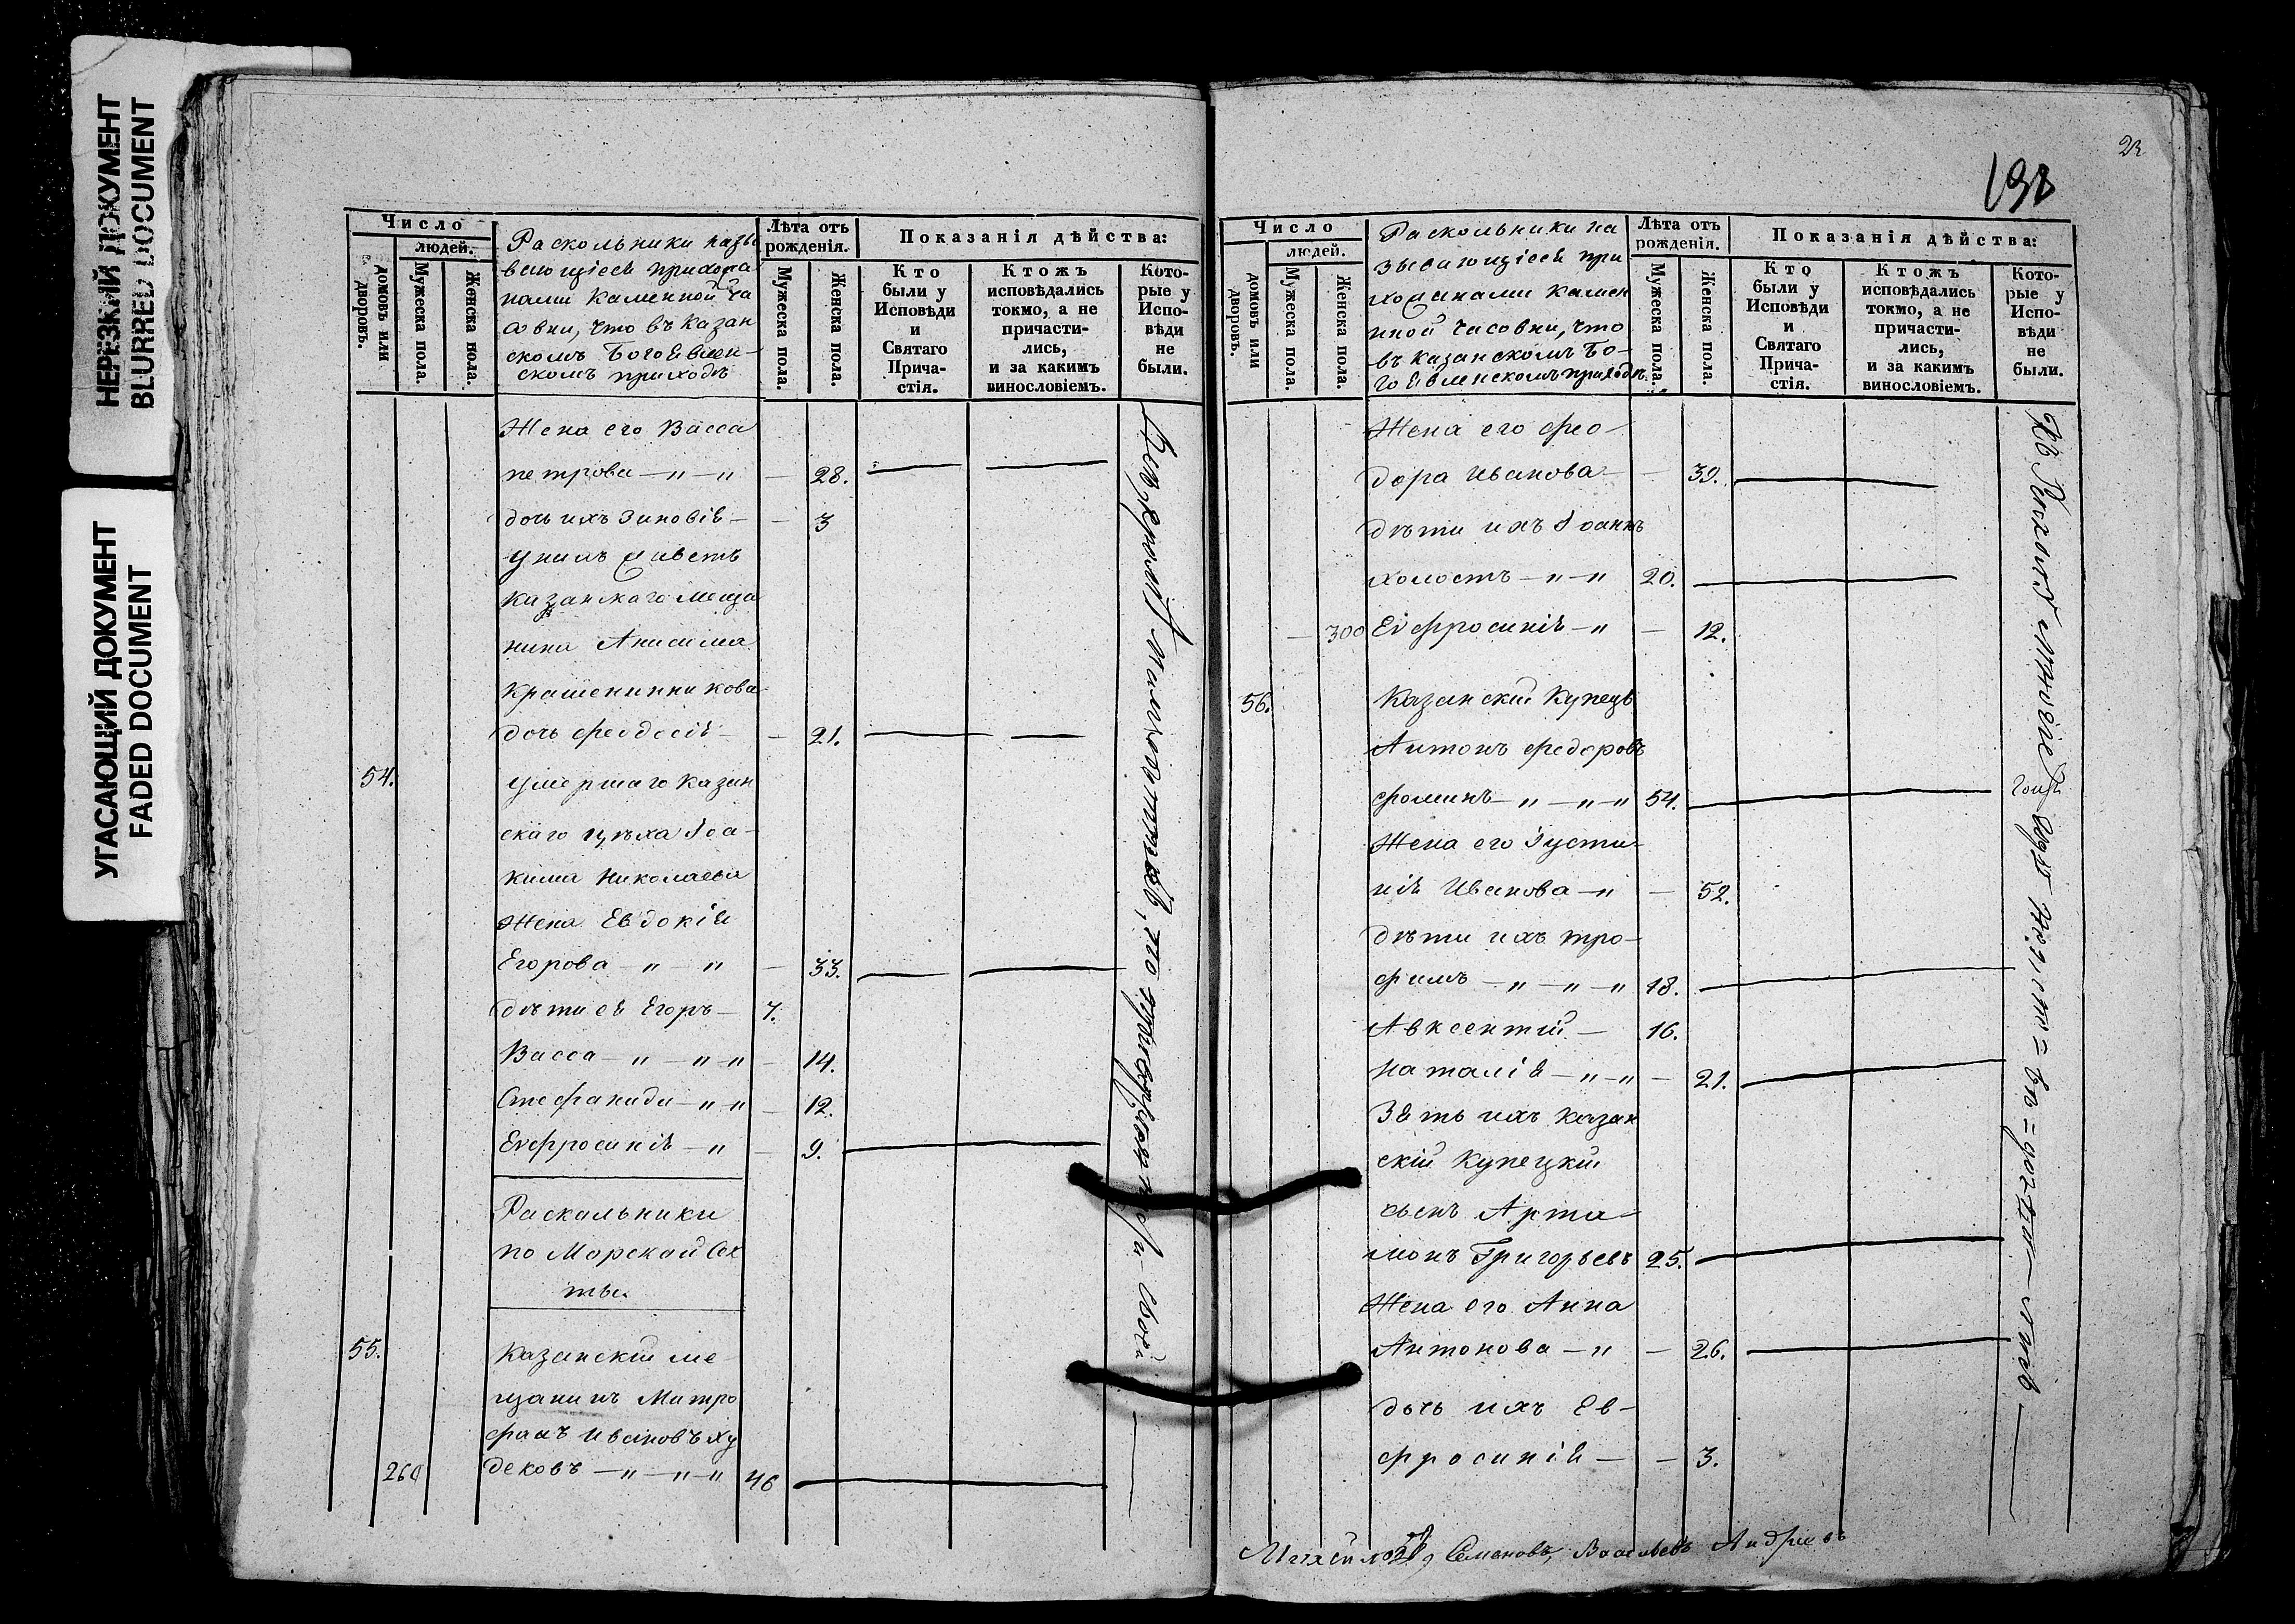 НЕРЕЗКИЙ ДОКУМЕНТ
BLURRED DOCUMENT
УГАСАЮЩИЙ ДОКУМЕНТ
FADED DOCUMENT
Число
людей.
домовъ или дворовъ.
Мужеска пола.
Женска пола.
Раскольники назы
вающіеся прихожа
нами каменной ча
совни, что въ казан
скомъ Богоявлен-
скомъ приходѣ
Лѣта отъ рожденія.
Мужеска пола.
Женска пола.
Показанія дѣйства:
Кто были у Исповѣди и Святаго Причастія.
Ктожъ исповѣдались токмо, а не причасти-лись, и за какимъ винословіемъ.
Кото-рые у Испо-вѣди не были.
Жена его Васса
петрова — „ — „ — 28.
дочь ихъ Зиновія — — 3
у нихъ живетъ
казанскаго меща
нина Анисима
Крашенинникова
дочь феодосія — — 21.
54. умершаго казан
скаго цѣха Іоа-
кима Николаева
жена Евдокія
Егорова — „ — „ — 33.
дѣти ея Егоръ — 7.
Васса — „ — „ — „ — 14.
Стефанида — „ — „ — 12.
Евфросинія — „ — 9.
Раскальники
по Морской Сек
ты
55. Казанскій ме
щанинъ Митро
фанъ Ивановъ ху
260 дековъ — „ — „ — „ 46
23
198
Число
людей.
домовъ или дворовъ.
Мужеска пола.
Женска пола.
Раскольники на
зывающіеся при
хожанами камен
нной часовни, что
въ казанскомъ Бо-
гоявленскомъ приходѣ
Лѣта отъ рожденія.
Мужеска пола.
Женска пола.
Показанія дѣйства:
Кто были у Исповѣди и Святаго Прича-стія.
Ктожъ исповѣдались токмо, а не причасти-лись, и за какимъ винословіемъ.
Кото-рые у Испо-вѣди не были.
Жена его фео-
дора Иванова — — 39.
дѣти ихъ Іоаннъ
холостъ — „ — „ 20.
— 300 Евфросинія — „ — 12.
56. Казанскій Купецъ
Антонъ федоровъ
фоминъ — „ — „ — „ 54.
Жена его Іусти-
нія Иванова — „ — 52.
дѣти ихъ тро-
фимъ — „ — „ — „ 18.
Авксентій — 16.
Наталія — „ — „ — 21.
Зять ихъ казан
скій Купецкій
сынъ Арта-
монъ Григорьевъ 25.
Жена его Анна
Антонова — „ — 26.
дочь ихъ Ев-
фросинія — — 3.
Семеновъ, Васильевъ Андреевъ